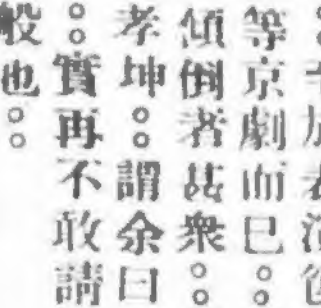 等京劇而已。。
傾倒者甚衆。。
孝坤。。謂余曰
。。實再不敢請
般也。。